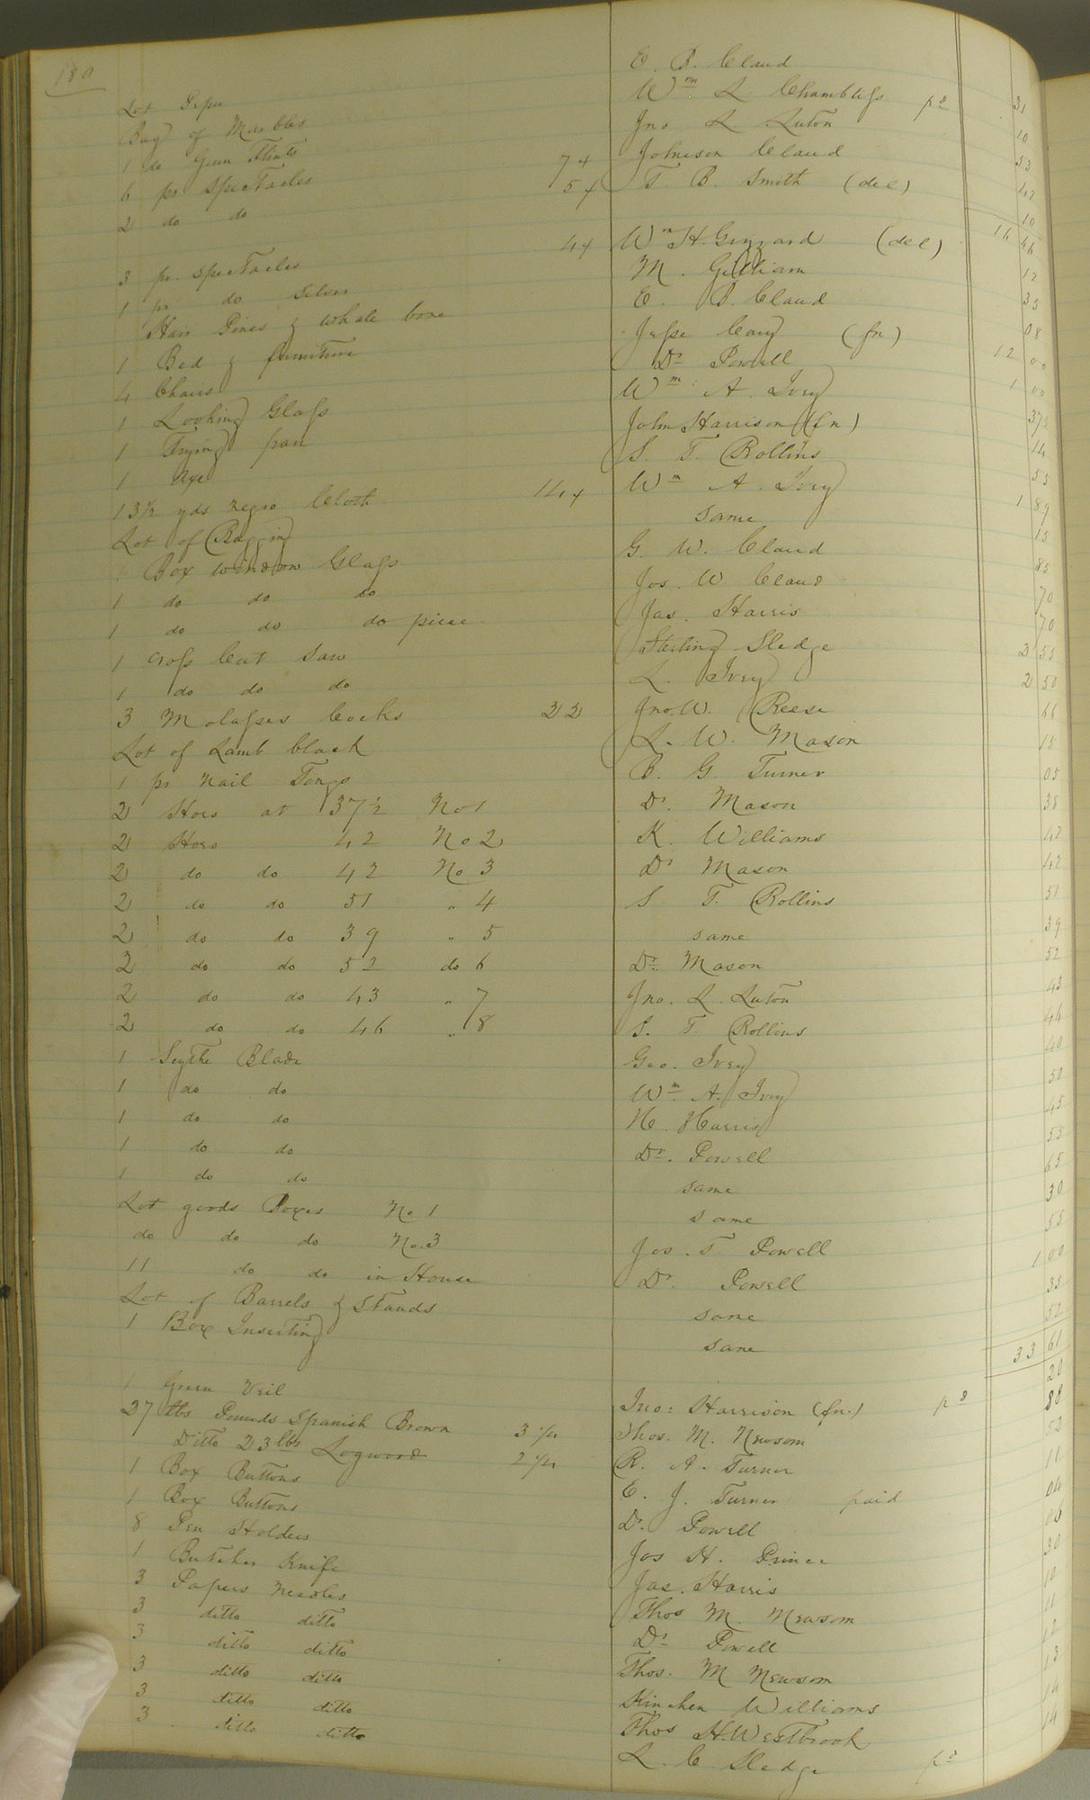 180
Lot E. B. Claud 31
Bag of Marbles Wm L Chambliss pd 10
1 do Gun Flints Jno L Luton 53
6 pr Spectacles 7 4 Johnson Claud 42
2 do do 5 4 T. B. Smith (del) 10
14 46
3 pr. Spectacles 44 Wm H. Grizzard (del) 12
1 pr do silver M. Gilliam 35
Hair Pines & whale bone E. B. Claud 08
1 Bed & furniture Jesse Cary (fn) 12 00
4 Chairs Dr Powell 1 00
1 Looking Glass Wm A. Ivey 37½
1 Frying pan John Harrison (fn) 14
1 Axe S. T. Rollins 55
13½ yds negro Cloth 14 4 Wm A. Ivey 1 89
Lot of Raggin same 15
1 Box window Glass G. W. Claud 85
1 do do do Jos. W Claud 70
1 do do do piece Jas. Harris 70
1 Cross Cut Saw Sterling Sledge 2 55
1 do do do L. Ivey 2 50
3 Molasses Cocks 22 Jno. W. Reese 66
Lot of Lamb black L. W. Mason 15
1 pr nail Tongs B. G. Turner 05
2 Hoes at 37½ No 1 Dr. Mason 38
2 Hoes 42 No 2 K. Williams 42
2 do do 42 No 3 Dr Mason 42
2 do do 51 " 4 S T. Rollins 51
2 do do 39 " 5 same 39
2 do do 52 do 6 Dr. Mason 52
2 do do 43 " 7 Jno. L. Luton 43
2 do do 46 " 8 S. T Rollins 46
1 Scythe Blade Geo. Ivey 40
1 do do Wm A. Ivey 50
1 do do N. Harris 45
1 do do Dr. Powell 55
1 do do same 65
Lot goods Boxes No 1 same 30
do do do No. 3 Jos. T Powell 55
11 do do in House Dr. Powell 1 00
Lot of Barrels & Stands same 35
1 Box Inserting same 52
33 61
1 Green Veil Jno: Harrison (fn.) pd 20
27 lbs Pounds Spanish Brown 3 ¼ Thos. M. Newsom 88
Ditto 23 lbs Logwood 2 ¼ R. A. Turner 52
1 Box Buttons E. J. Turner paid 11
1 Box Buttons Dr. Powell 04
8 Pen Holders Jos H. Prince
1 Butcher Knife Jas. Harris 30
3 Papers Needles Thos M. Newsom 10
3 ditto ditto Dr Powell 11
3 ditto ditto Thos. M Newsom 12
3 ditto ditto Kinchen Williams 13
3 ditto ditto Thos H. Westbrook 14
3 ditto ditto L. C Sledge pd 14